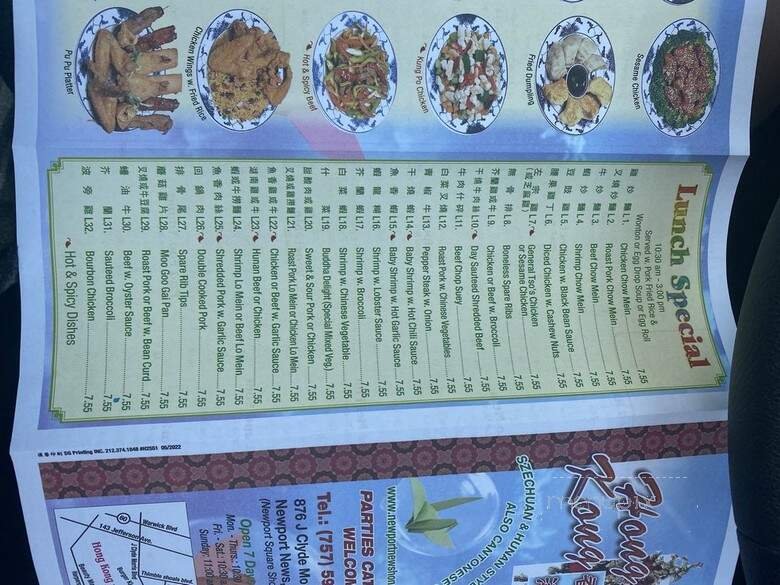 Sesame Chicken
Fried Dumpling
Kung Po Chicken
Hot & Spicy Beef
Chicken Wings w. Fried Rice
Pu Pu Platter
Lunch Special
10:30 am - 3:00 pm
Served w. Pork Fried Rice &
Wonton or Egg Drop Soup or Egg Roll
雞炒麵 L1. Chicken Chow Mein 7.55
叉燒炒麵 L2. Roast Pork Chow Mein 7.55
牛炒麵 L3. Beef Chow Mein 7.55
蝦炒麵 L4. Shrimp Chow Mein 7.55
豆豉雞 L5. Chicken w. Black Bean Sauce 7.55
腰果雞丁 L6. Diced Chicken w. Cashew Nuts 7.55
左宗雞 L7. General Tso's Chicken
(或芝麻雞) or Sesame Chicken 7.55
無骨排 L8. Boneless Spare Ribs 7.55
芥蘭雞或牛 L9. Chicken or Beef w. Broccoli 7.55
干燒牛肉絲 L10. Day Sauteed Shredded Beef 7.55
牛肉什碎 L11. Beef Chop Suey 7.55
白菜叉燒 L12. Roast Pork w. Chinese Vegetables 7.55
青椒牛 L13. Pepper Steak w. Onion 7.55
干燒蝦 L14. Baby Shrimp w. Hot Chili Sauce 7.55
魚香蝦 L15. Baby Shrimp w. Hot Garlic Sauce 7.55
蝦龍糊 L16. Shrimp w. Lobster Sauce 7.55
芥蘭蝦 L17. Shrimp w. Broccoli 7.55
白菜蝦 L18. Shrimp w. Chinese Vegetable 7.55
什菜 L19. Buddha Delight (Special Mixed Veg.) 7.55
甜酸肉或雞 L20. Sweet & Sour Pork or Chicken 7.55
叉燒或雞撈麵 L21. Roast Pork Lo Mein or Chicken Lo Mein 7.55
魚香雞或牛 L22. Chicken or Beef w. Garlic Sauce 7.55
湖南雞或牛 L23. Hunan Beef or Chicken 7.55
蝦或牛撈麵 L24. Shrimp Lo Mein or Beef Lo Mein 7.55
魚香肉絲 L25. Shredded Pork w. Garlic Sauce 7.55
回鍋肉 L26. Double Cooked Pork 7.55
排骨尾 L27. Spare Rib Tips 7.55
蘑菇雞片 L28. Moo Goo Gai Pan 7.55
叉燒或牛豆腐 L29. Roast Pork or Beef w. Bean Curd 7.55
蠔油牛 L30. Beef w. Oyster Sauce 7.55
芥蘭 L31. Sauteed Broccoli 7.55
波旁雞 L32. Bourbon Chicken 7.55
Hot & Spicy Dishes
SG Printing INC. 212.374.1848 #H2551 05/2022
Hong
Kong
SZECHUAN & HUNAN STY
ALSO CANTONESE
www.newportnewshon
PARTIES CAT
WELCOM
Tel.: (757) 59
876 J Clyde Mo
Newport News,
(Newport Square Sh
Open 7 Day
Mon. - Thurs.: 10:30
Fri. - Sat.: 10:30
Sunday: 11:30
60
Warwick Blvd
143 Jefferson Ave.
J Clyde Morris Blvd
Thimble shoals blvd.
Hong Kong